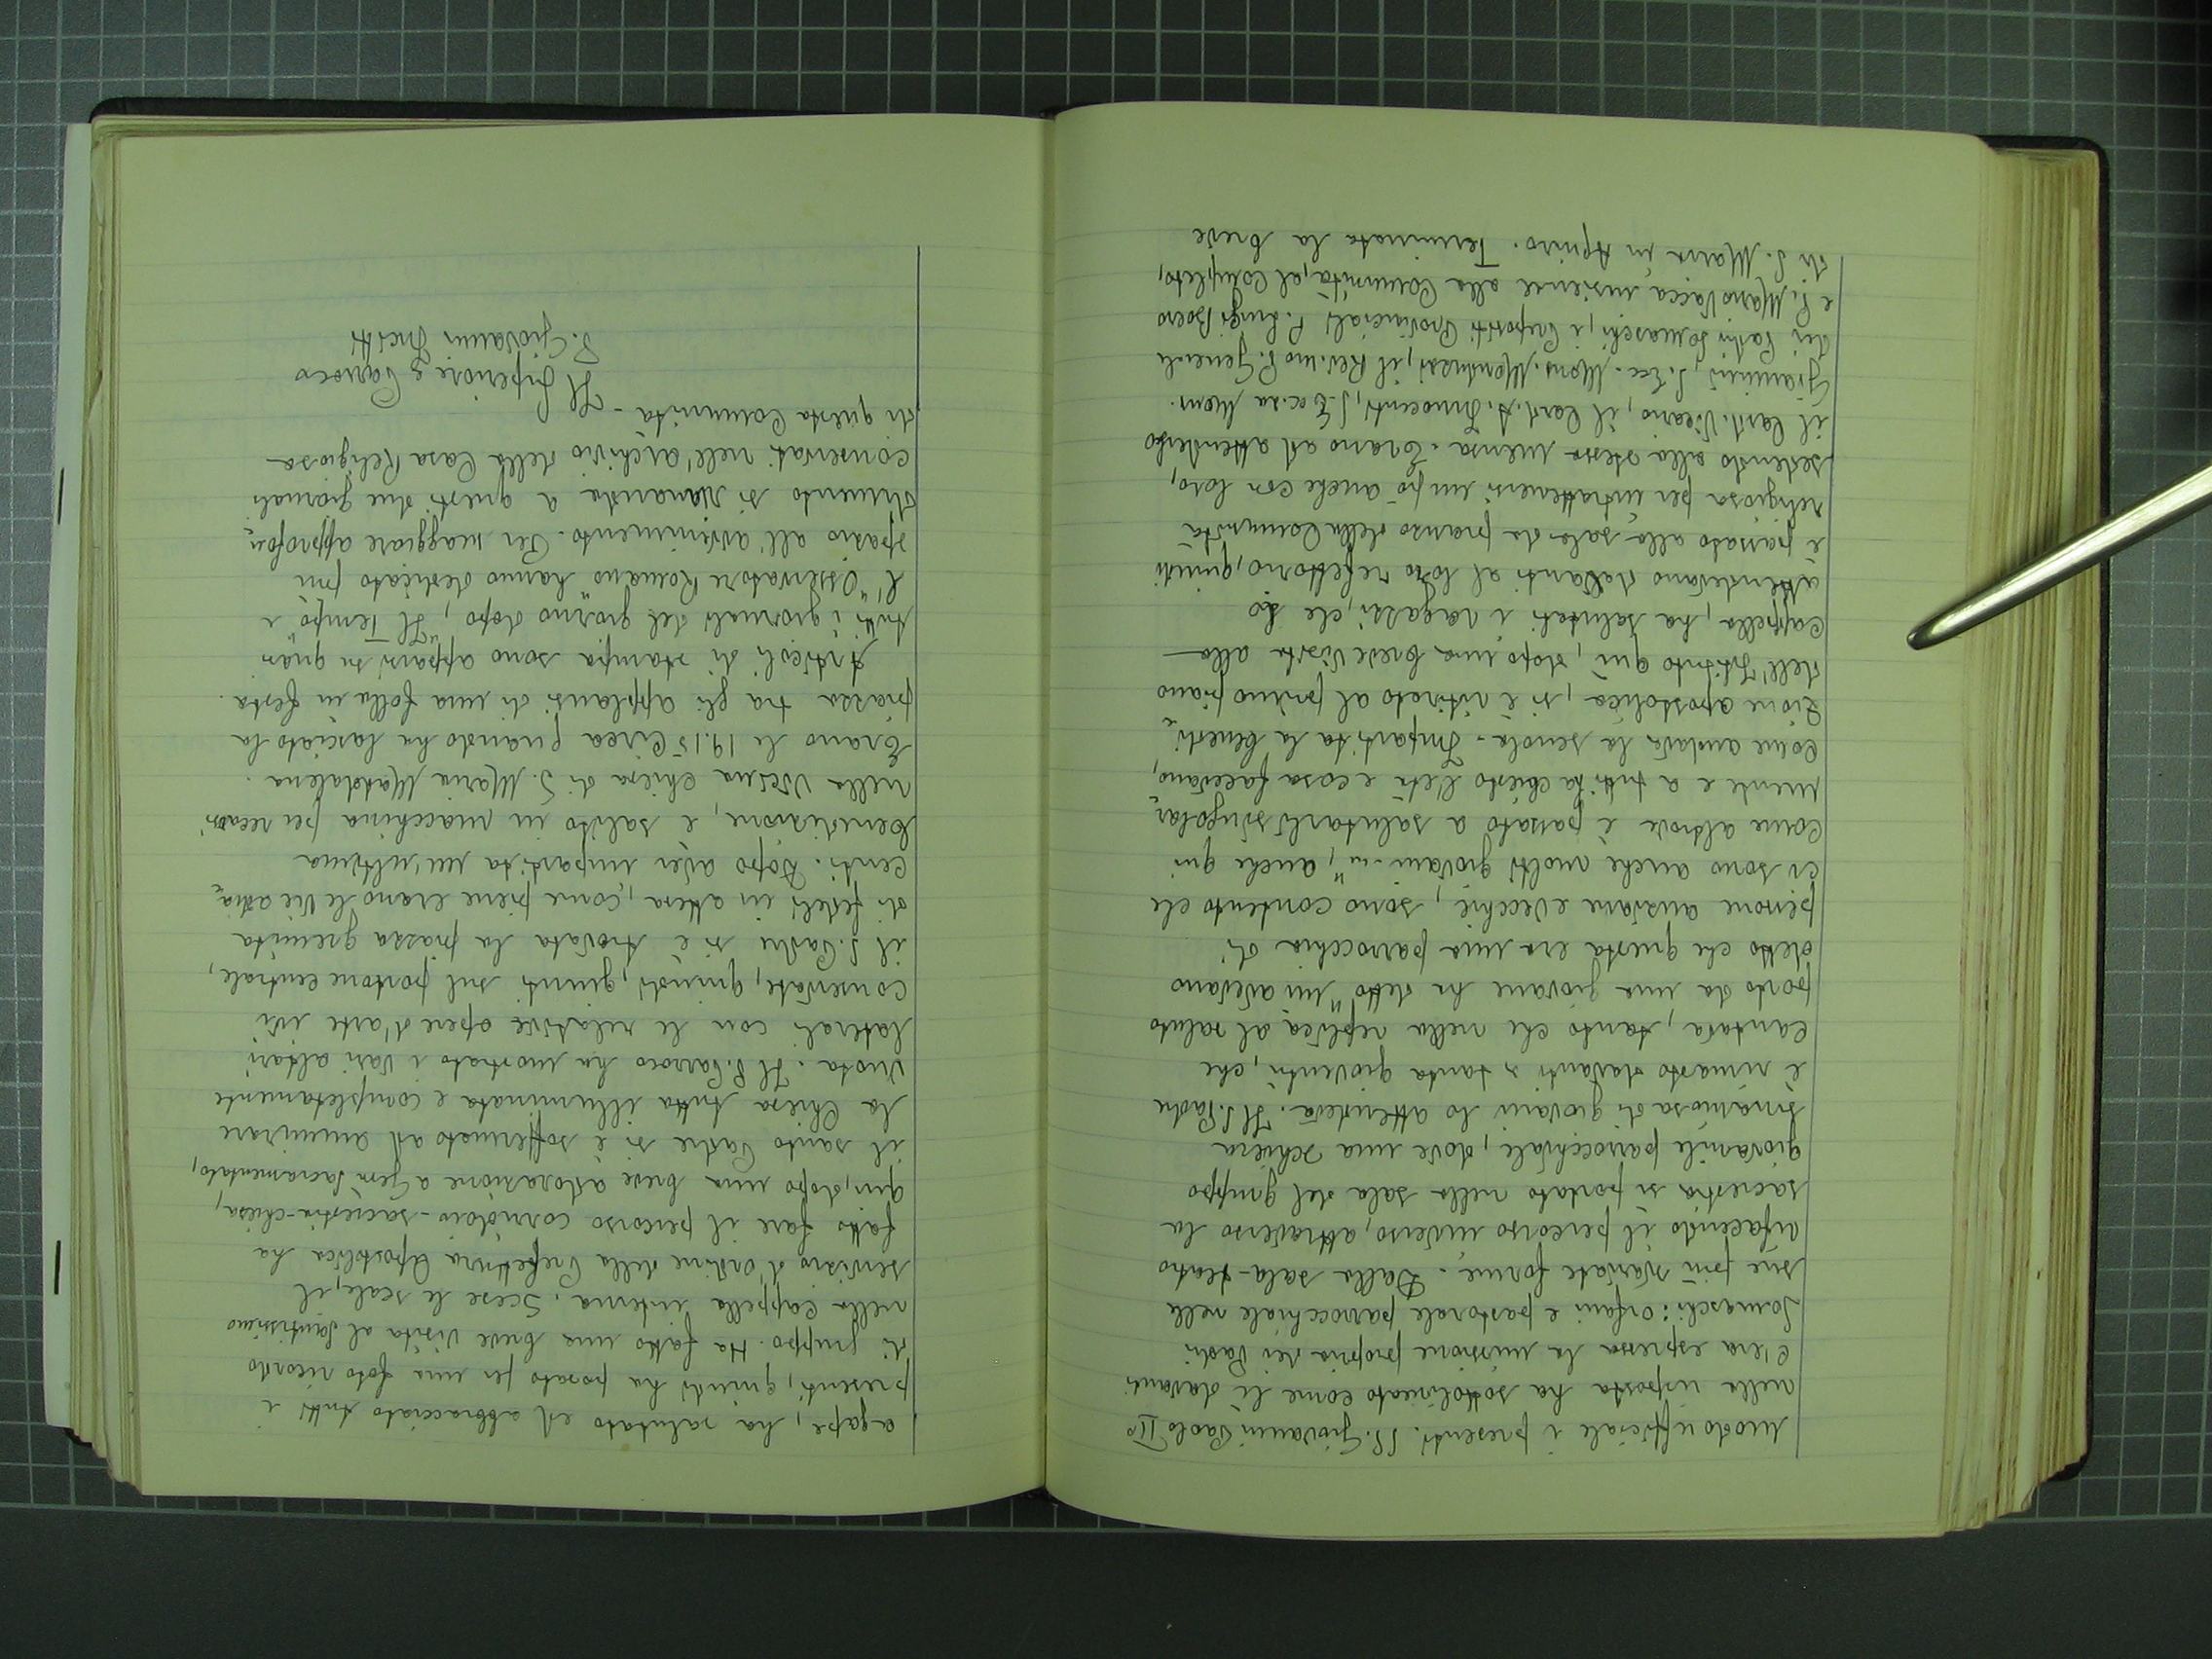 modo ufficiale i presenti. SS. Giovanni Paolo II°
nella risposta ha sottolineato come lì davanti
c'era espressa la missione propria dei Padri
Somaschi: Orfani e pastorale parrocchiale nelle
sue più svariate forme. Dalla sala-teatro
rifacendo il percorso inverso, attraverso la
sacrestia si portato nella sala del gruppo
giovanile parrocchiale, dove una schiera
numerosa di giovani lo attendeva. Il S. Padre
è rimasto davanti a tanta gioventù, che
cantava, tanto che nella replica al saluto
porto da una giovane ha detto "mi avevano
detto che questa era una parrocchia di
persone anziane e vecchie, sono contento che
ci sono anche molti giovani...", anche qui
come altrove è passato a salutarli singolar
mente e a tutti ha chiesto l'età e cosa facevano,
come andava la scuola. Impartita la benedi
zione apostolica, si è ritirato al primo piano
dell'Istituto qui, dopo una breve visita alla
cappella, ha salutati i ragazzi, che lo
attendevano davanti al loro refettorio, quindi
è passato alla sala da pranzo della Comunità
religiosa per intrattenersi un pò anche con loro,
sedendo alla stessa mensa. Erano ad attenderlo
il Card. Vicario, il Card. A. Innocenti, S. Ecc.za Mons.
Giannini, S. Ecc. Mons. Marduzzi, il Rev.mo P. Generale
dei Padri Somaschi, i Prepositi Provinciali P. Luigi Boero
e P. Mario Vacca insieme alla Comunità, al completo,
di S. Maria in Aquiro. Terminata la breve
agape, ha salutato ed abbracciato tutti i
presenti, quindi ha posato per una foto ricordo
di gruppo. Ha fatto una breve visita al Santissimo
nella cappella interna. Scese le scale, il
servizio d'ordine della Prefettura Apostolica ha
fatto fare il percorso corridoio-sacrestia-chiesa,
qui, dopo una breve adorazione a Gesù Sacramentato,
il santo Padre si è soffermato ad ammirare
la Chiesa tutta illuminata e completamente
vuota. Il P. Parroco ha mostrato i vari altari
laterali con le relative opere d'arte ivi
conservate, quindi, giunti sul portone centrale,
il S. Padre si è trovata la piazza gremita
di fedeli in attesa, come piene erano le vie adia
centi. Dopo aver impartita un'ultima
benedizione, è salito in macchina per recarsi
nella vicina chiesa di S. Maria Maddalena.
Erano le 19.15 circa quando ha lasciato la
piazza tra gli applausi di una folla in festa.
Articoli di stampa sono apparsi su quasi
tutti i giornali del giorno dopo, "Il Tempo" e
l'"Osservatore Romano" hanno dedicato più
spazio all'avvenimento. Per maggiore approfon
dimento si rimanda a questi due giornali
conservati nell'archivio della Casa Religiosa
di questa Comunità -
Il Superiore e Parroco
P. Giovanni